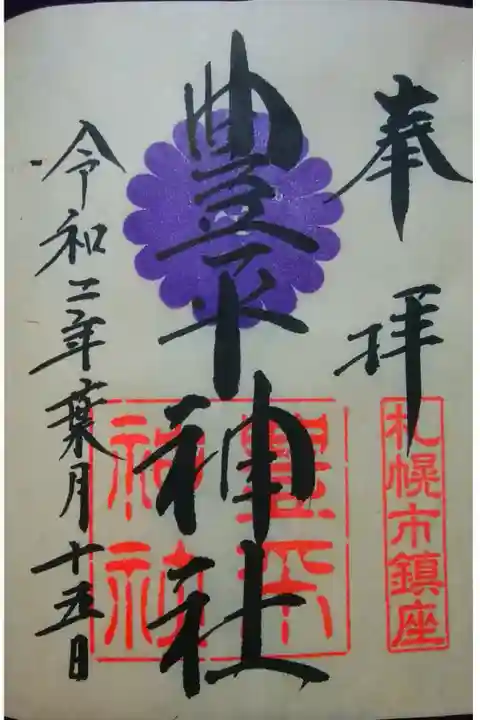 奉拝
札幌市鎮座
豊平神社
豊平神社
令和二年葉月十五日